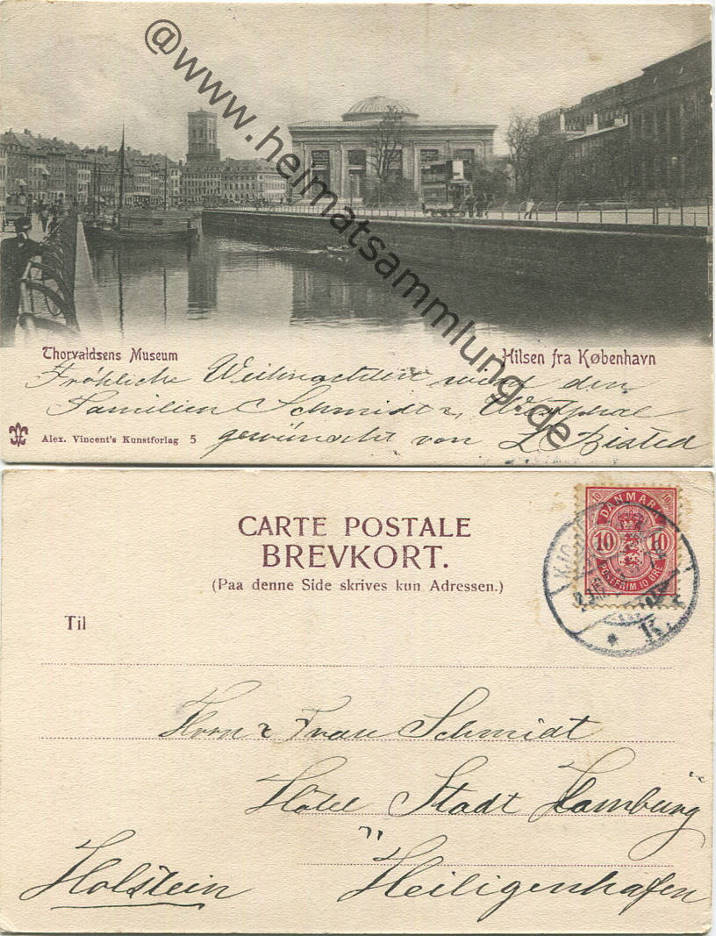 @www.heimatsammlung.de
Thorvaldsens Museum
Hilsen fra København
Fröhliche Weihnachten wird den
Familien Schmidt &
gewünscht von L.
Alex. Vincent's Kunstforlag 5
CARTE POSTALE
BREVKORT.
(Paa denne Side skrives kun Adressen.)
DANMARK
10 10
Til
K.
Herrn & Frau Schmidt
Hôtel Stadt Hamburg
Heiligenhafen
Holstein